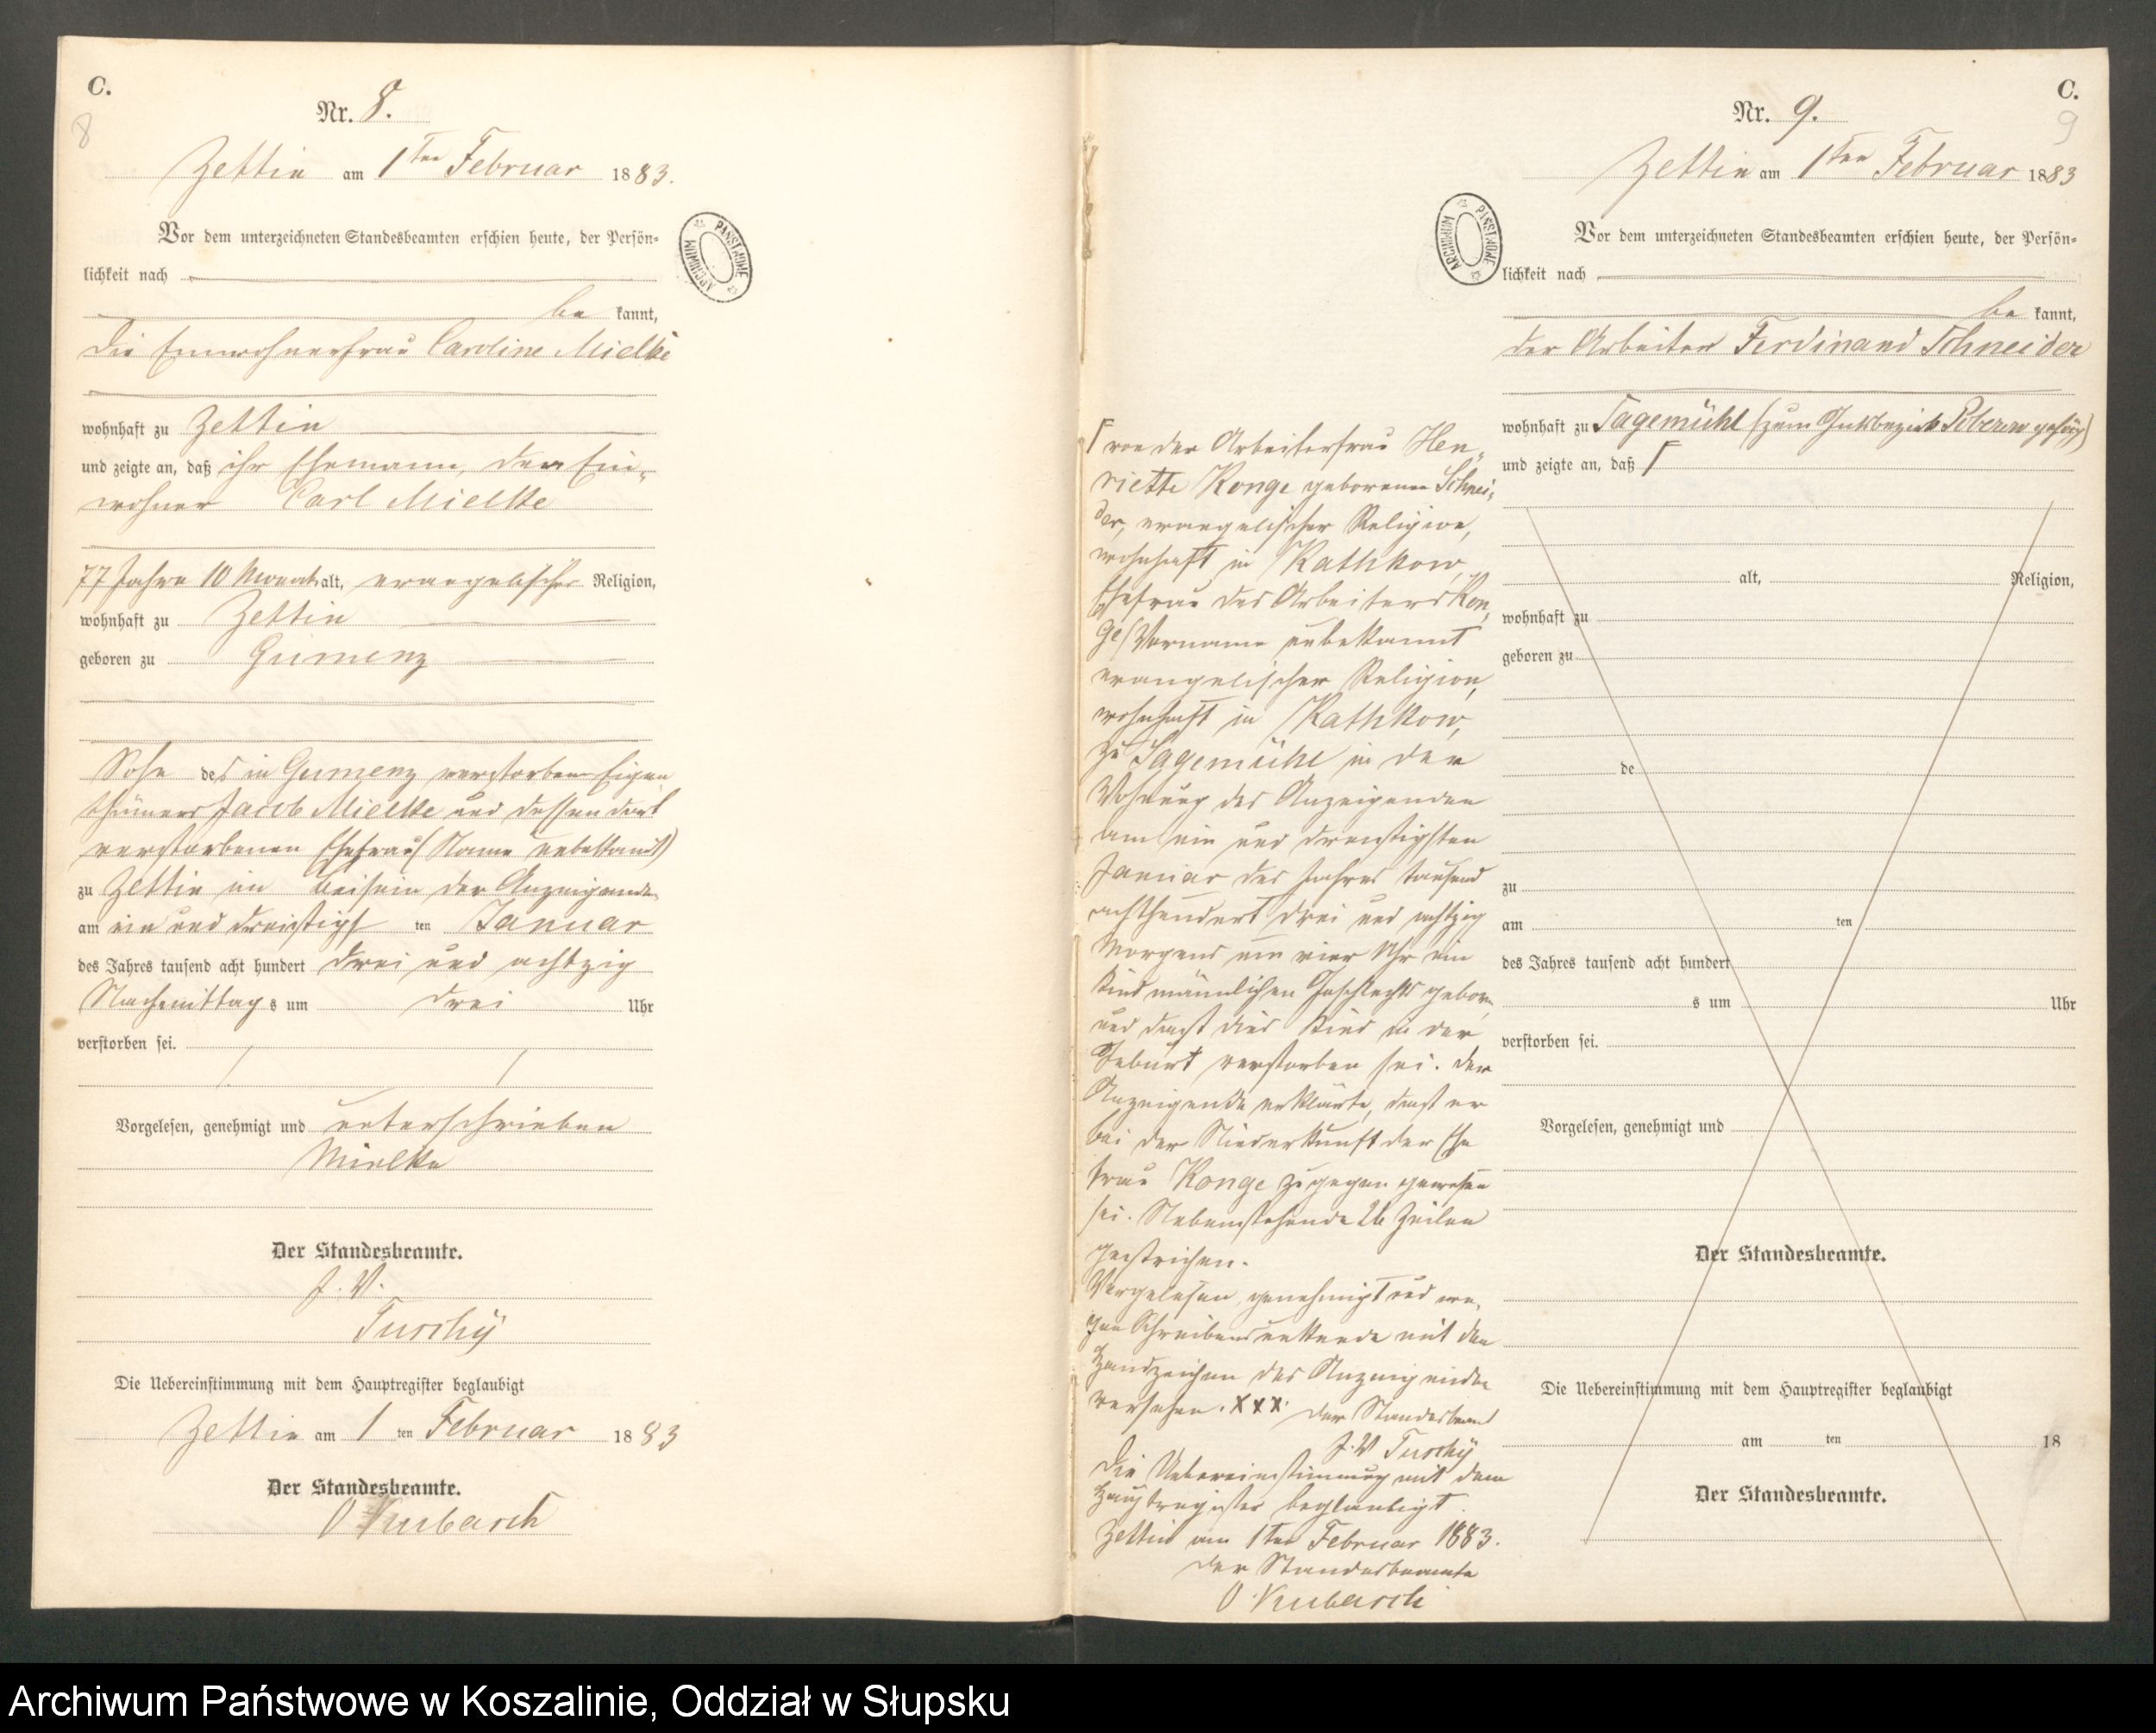 C.
8
Nr. 8.
Zettin am 1ten Februar 1883.
Vor dem unterzeichneten Standesbeamten erschien heute, der Persön-
lichkeit nach
be kannt,
die Einwohnerfrau Caroline Mielke
wohnhaft zu Zettin
und zeigte an, daß ihr Ehemann, der Ein-
wohner Carl Mielke
77 Jahre 10 Monat alt, evangelischer Religion,
wohnhaft zu Zettin
geboren zu Gumenz
Sohn des in Gumenz verstorbenen Eigen
thümers Jacob Mielke und dessen dort
verstorbenen Ehefrau (Name unbekannt)
zu Zettin im Beisein der Anzeigenden
am ein und dreißigst ten Januar
des Jahres tausend acht hundert drei und achtzig
Nachmittag s um drei Uhr
verstorben sei.
Vorgelesen, genehmigt und unterschrieben
Mielke
Der Standesbeamte.
J. V.
Tuschÿ
Die Uebereinstimmung mit dem Hauptregister beglaubigt
Zettin am 1 ten Februar 1883
Der Standesbeamte.
O Kubasch
ARCHIWUM PAŃSTWOWE
C.
9
Nr. 9.
Zettin am 1ten Februar 1883
ARCHIWUM PAŃSTWOWE
Vor dem unterzeichneten Standesbeamten erschien heute, der Persön-
lichkeit nach
be kannt,
der Arbeiter Ferdinand Schneider
wohnhaft zu Sagemühl (zum Gutsbezirk gehörig)
und zeigte an, daß Γ
alt, Religion,
wohnhaft zu
geboren zu
de
zu
am ten
des Jahres tausend acht hundert
s um Uhr
verstorben sei.
Vorgelesen, genehmigt und
Der Standesbeamte.
Die Uebereinstimmung mit dem Hauptregister beglaubigt
am ten 18
Der Standesbeamte.
Γ von der Arbeiterfrau Hen-
riette Konge geborenen Schnei-
der, evangelischer Religion,
wohnhaft in Kathkow,
Ehefrau des Arbeiters Kon-
ge (Vorname unbekannt
evangelischer Religion,
wohnhaft in Kathkow,
zu Sagemühl in der
Wohnung des Anzeigenden
am ein und dreißigsten
Januar des Jahres tausend
achthundert drei und achtzig
Morgens um vier Uhr ein
Kind männlichen Geschlechts geboren
und daß dies Kind in der
Geburt verstorben sei. Der
Anzeigende erklärte, daß er
bei der Niederkunft der Ehe
frau Konge zugegen gewesen
sei. Nebenstehende 26 Zeilen
gestrichen.
Vorgelesen, genehmigt und we-
gen Schreibensunkunde mit dem
Handzeichen des Anzeigenden
versehen. XXX. Der Standesbeamte
J. V Tuschÿ
Die Uebereinstimmung mit dem
Hauptregister beglaubigt
Zettin am 1ten Februar 1883.
Der Standesbeamte
O. Kubasch
Archiwum Państwowe w Koszalinie, Oddział w Słupsku